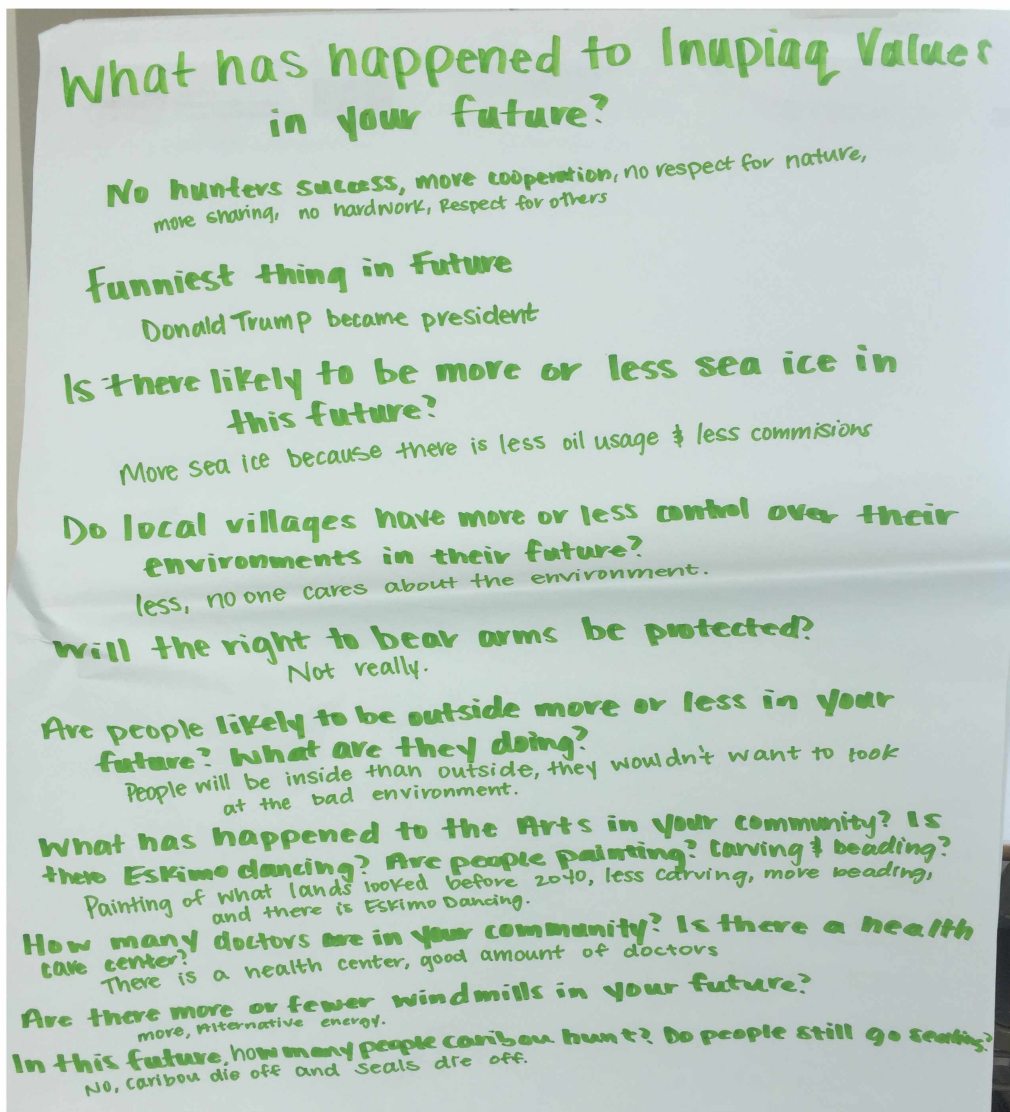 What has happened to Inupiaq Values
in your future?
No hunters success, more cooperation, no respect for nature,
more sharing, no hardwork, Respect for others
Funniest thing in Future
Donald Trump became president
Is there likely to be more or less sea ice in
this future?
More sea ice because there is less oil usage & less commisions
Do local villages have more or less control over their
environments in their future?
less, no one cares about the environment.
Will the right to bear arms be protected?
Not really.
Are people likely to be outside more or less in your
future? What are they doing?
People will be inside than outside, they wouldn't want to look
at the bad environment.
What has happened to the Arts in your community? Is
there Eskimo dancing? Are people painting? Carving & beading?
Painting of what lands looked before 2040, less carving, more beading,
and there is Eskimo Dancing.
How many doctors are in your community? Is there a health
care center?
There is a health center, good amount of doctors
Are there more or fewer windmills in your future?
more, Alternative energy.
In this future, how many people caribou hunt? Do people still go sealing?
No, caribou die off and seals die off.